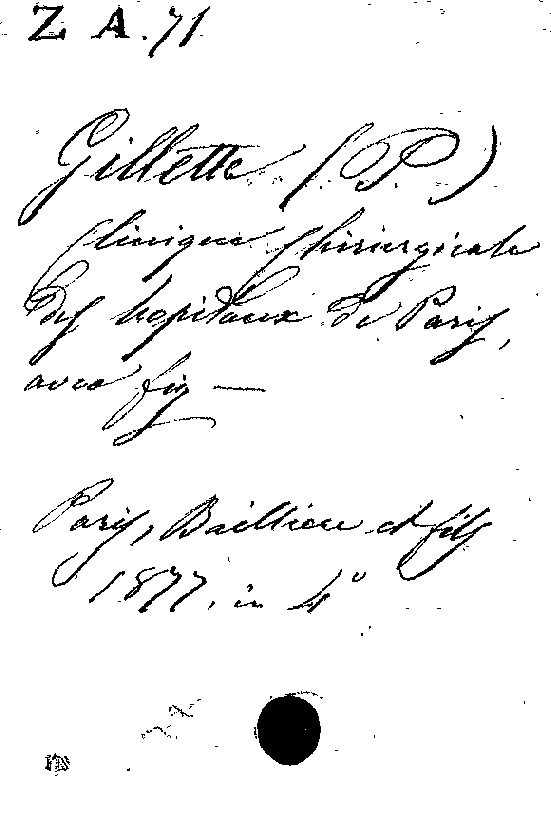 Z A. 71
Gillette (P.)
Clinique chirurgicale
des hopitaux de Paris,
avec fig —
Paris, Baillière et fils
1877, in 4°